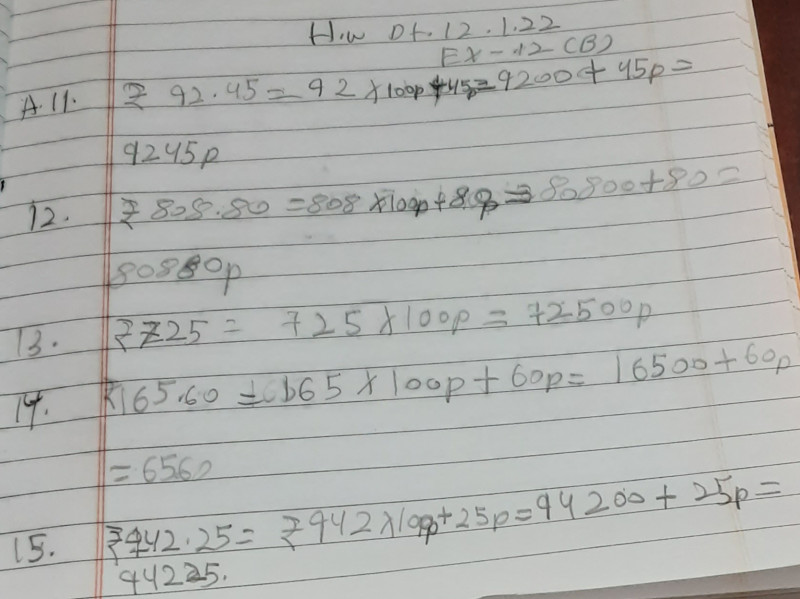 H.W Dt. 12.1.22
EX-12 (B)
A.11. ₹ 92.45 = 92 x 100p + 45p = 9200 + 45p =
9245p
12. ₹ 808.80 = 808 x 100p + 80p = 80800 + 80 =
80880p
13. ₹ 725 = 725 x 100p = 72500p
14. ₹165.60 = 165 x 100p + 60p = 16500 + 60p
= 6560
15. ₹942.25 = ₹942 x 100p + 25p = 94200 + 25p =
94225.